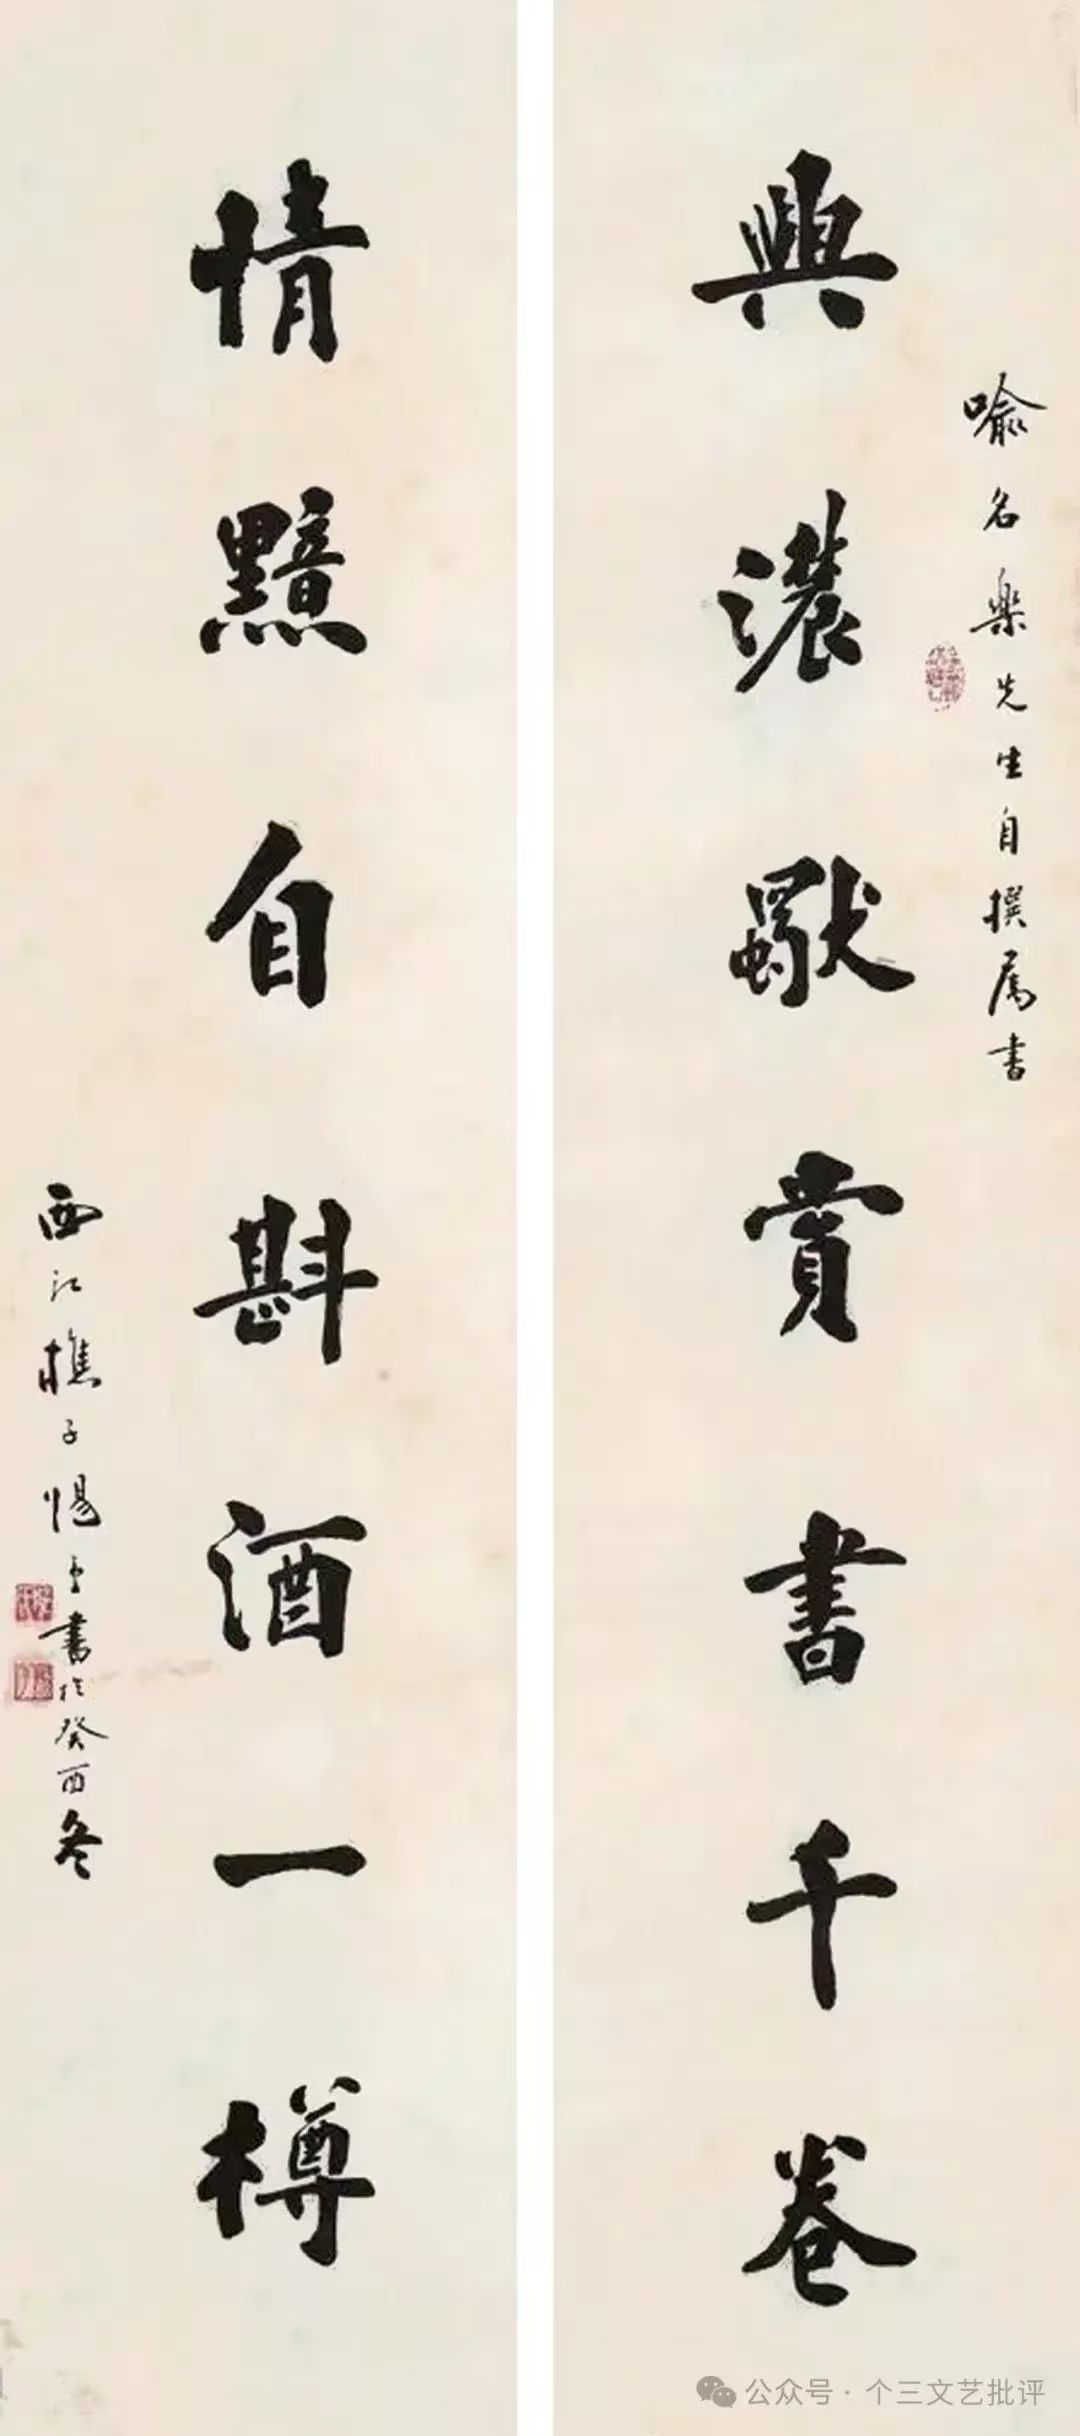 喻名楽先生自撰属書
興濃獨賞書千卷
情黯自斟酒一樽
西江樵子惕書於癸酉冬
公众号·个三文艺批评